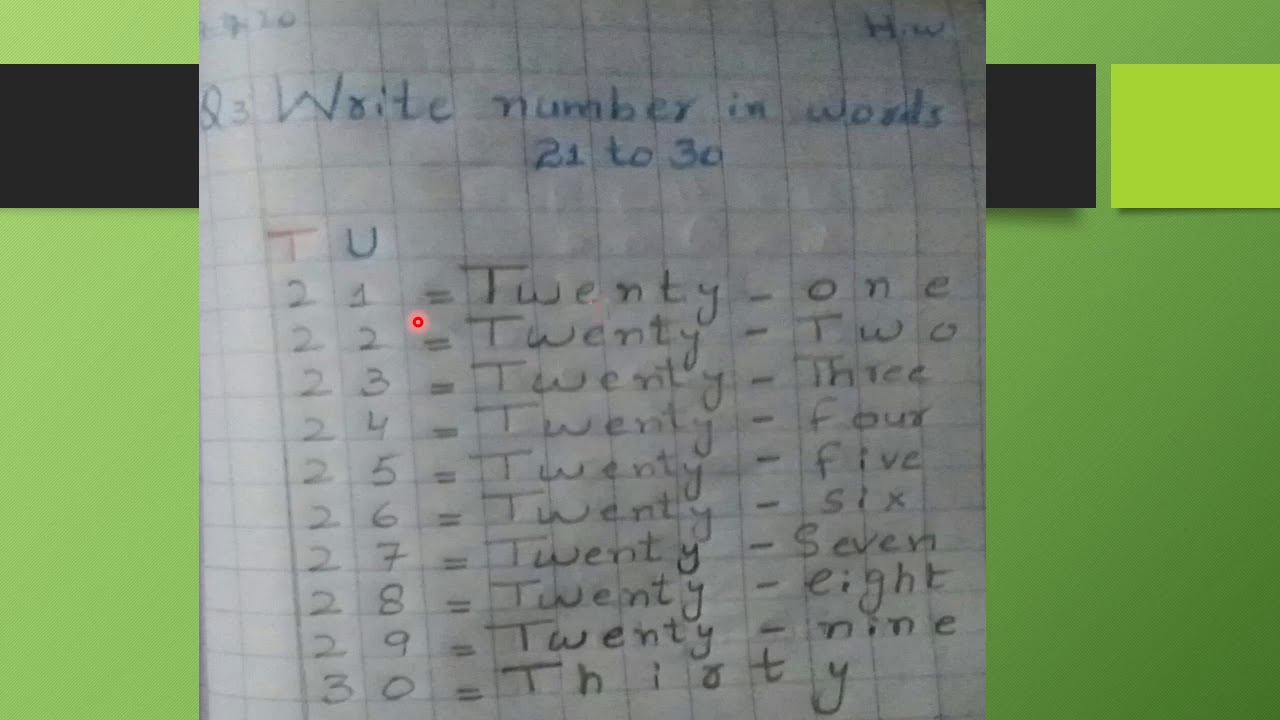 H.w
Q3 Write number in words
21 to 30
T U
21 = Twenty - one
22 = Twenty - Two
23 = Twenty - Three
24 = Twenty - four
25 = Twenty - five
26 = Twenty - six
27 = Twenty - Seven
28 = Twenty - eight
29 = Twenty - nine
30 = Thirty